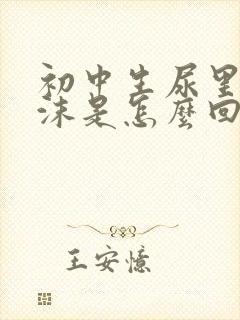 初中生尿里
沫是怎麼回
王安憶